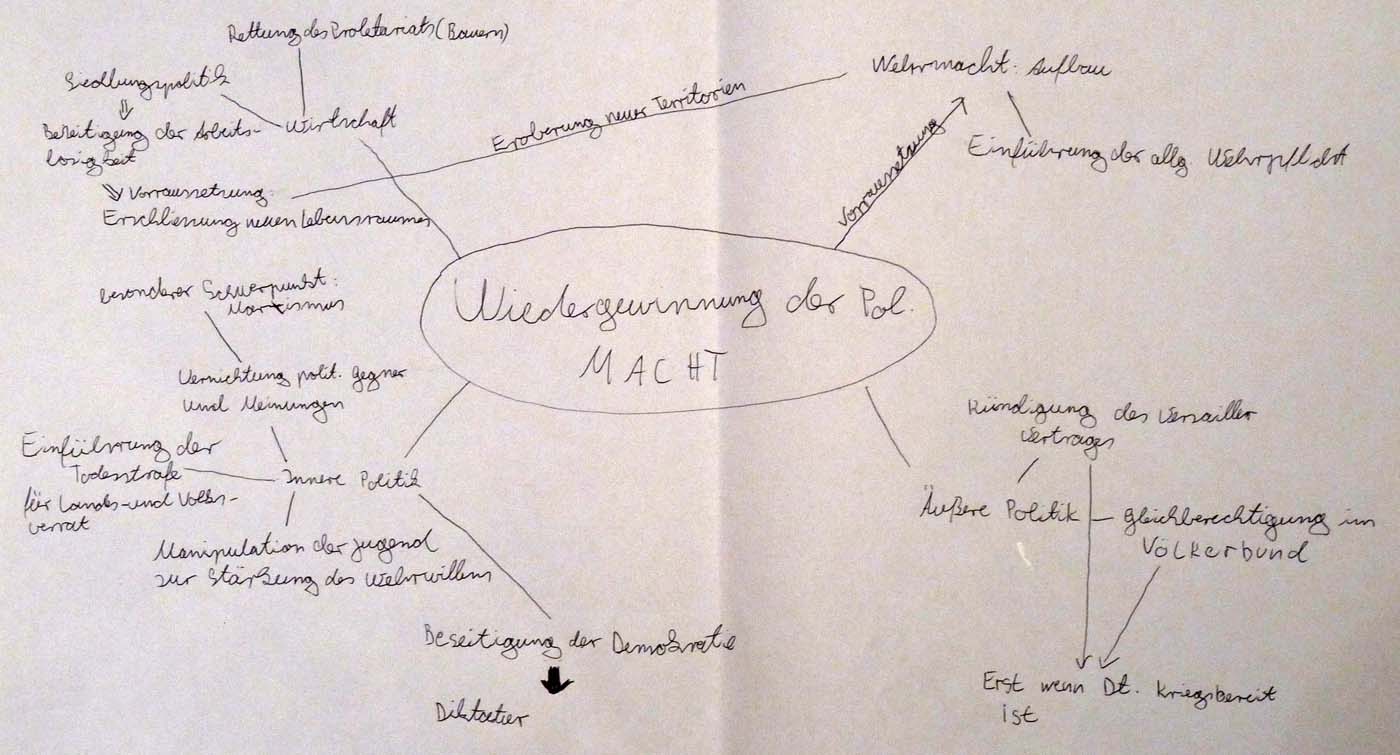 Rettung des Proletariats (Bauern)
Siedlungspolitik
⇓
Beseitigung der Arbeits-
losigkeit
Wirtschaft
⇓ Vorraussetzung:
Erschliessung neuen Lebensraumes
Eroberung neuer Territorien
Wehrmacht: Aufbau
Einführung der allg. Wehrpflicht
Vorraussetzung
Wiedergewinnung der Pol.
MACHT
besonderer Schwerpunkt:
Marxismus
Vernichtung polit. Gegner
und Meinungen
Einführung der
Todesstrafe
für Landes- und Volks-
verrat
Innere Politik
Manipulation der Jugend
zur Stärkung des Wehrwillens
Beseitigung der Demokratie
Kündigung des Versailler
Vertrages
Äußere Politik
Gleichberechtigung im
Völkerbund
Erst wenn Dt. kriegsbereit
ist